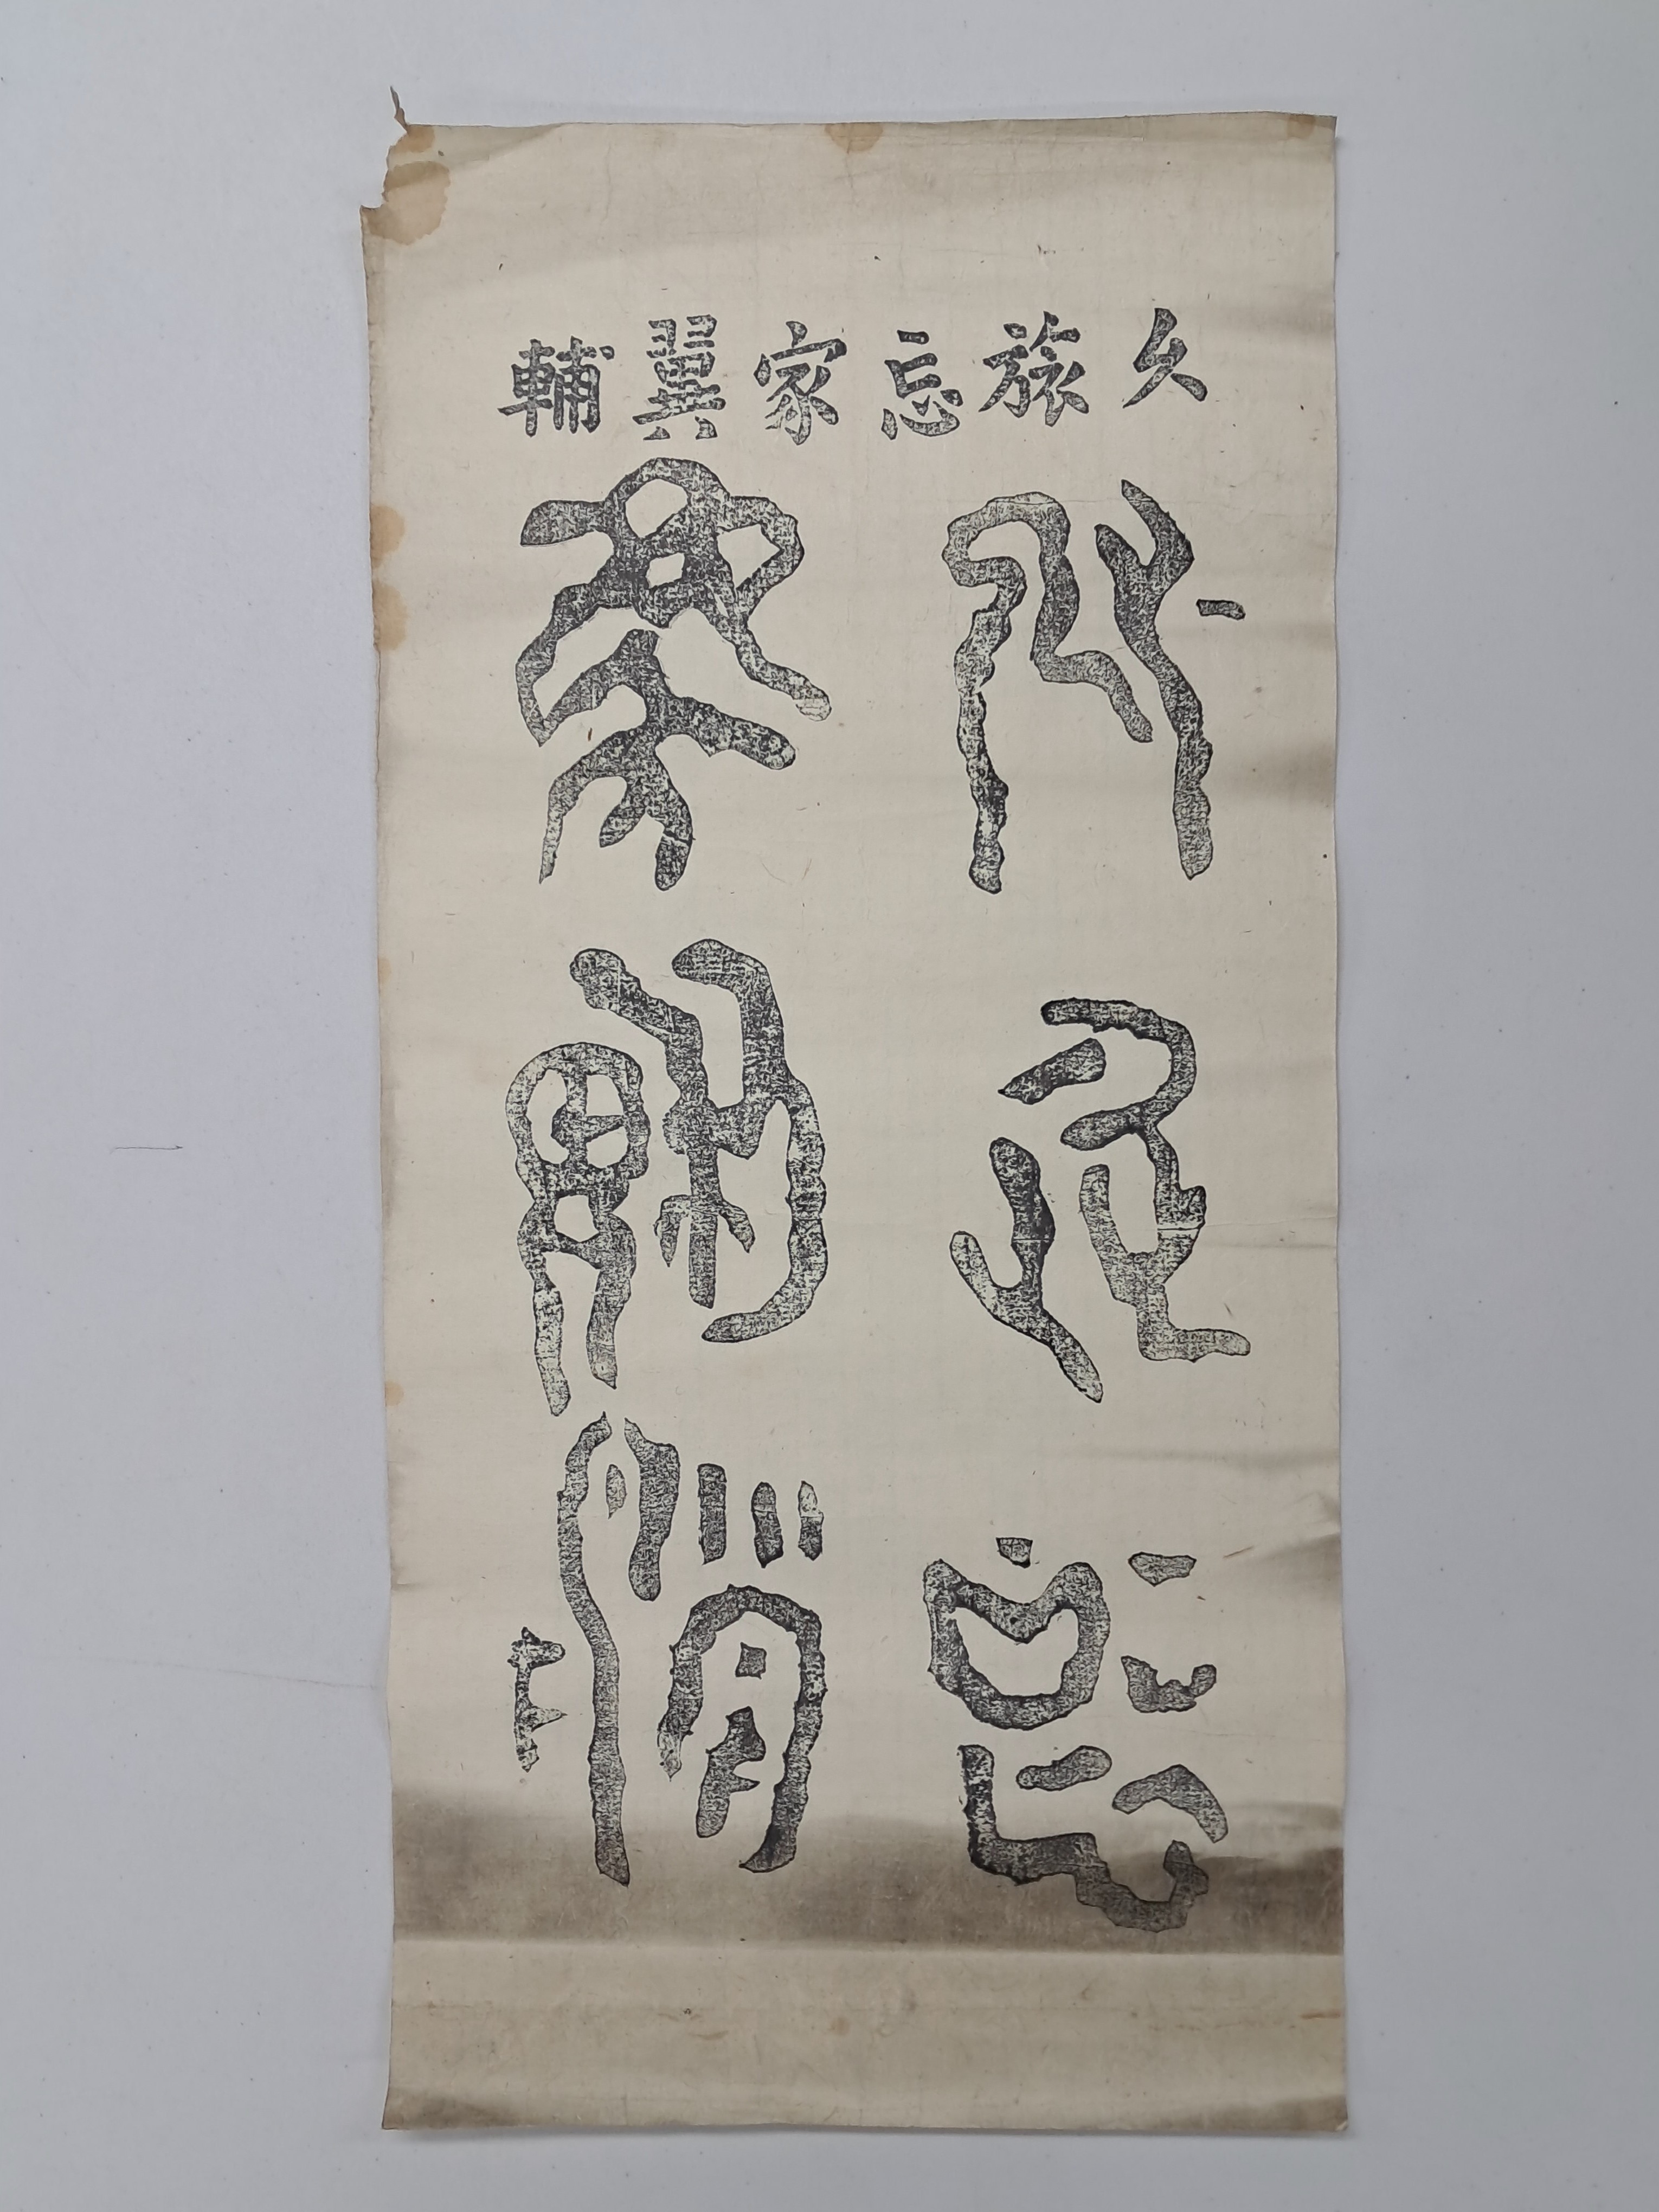 久旅忘家翼輔
久旅忘
家翼輔